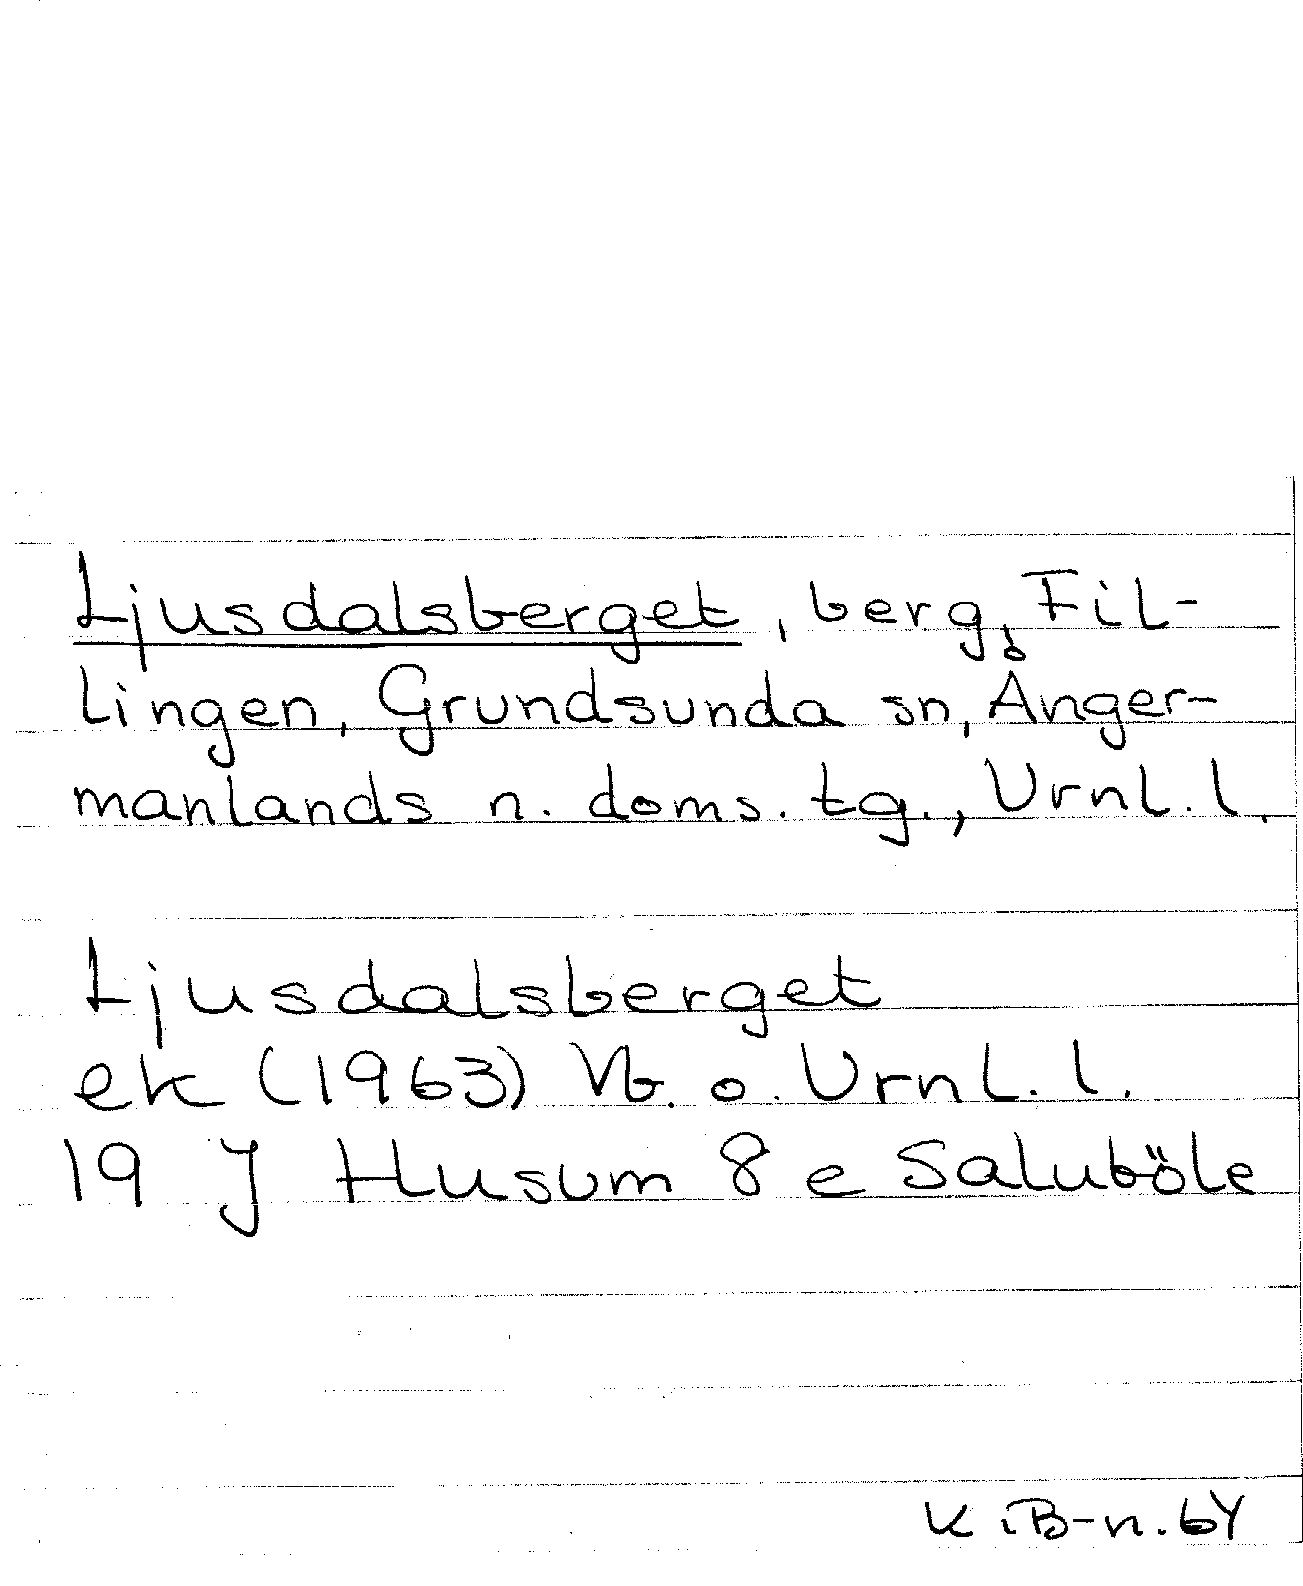 Ljusdalsberget, berg, Fil-
lingen, Grundsunda sn, Ånger-
manlands n. doms. tg., Vrnl. l.
Ljusdalsberget
ek (1963) Vb. o. Vrnl. l.
19 J Husum 8 e Saluböle
K. B-n. 64